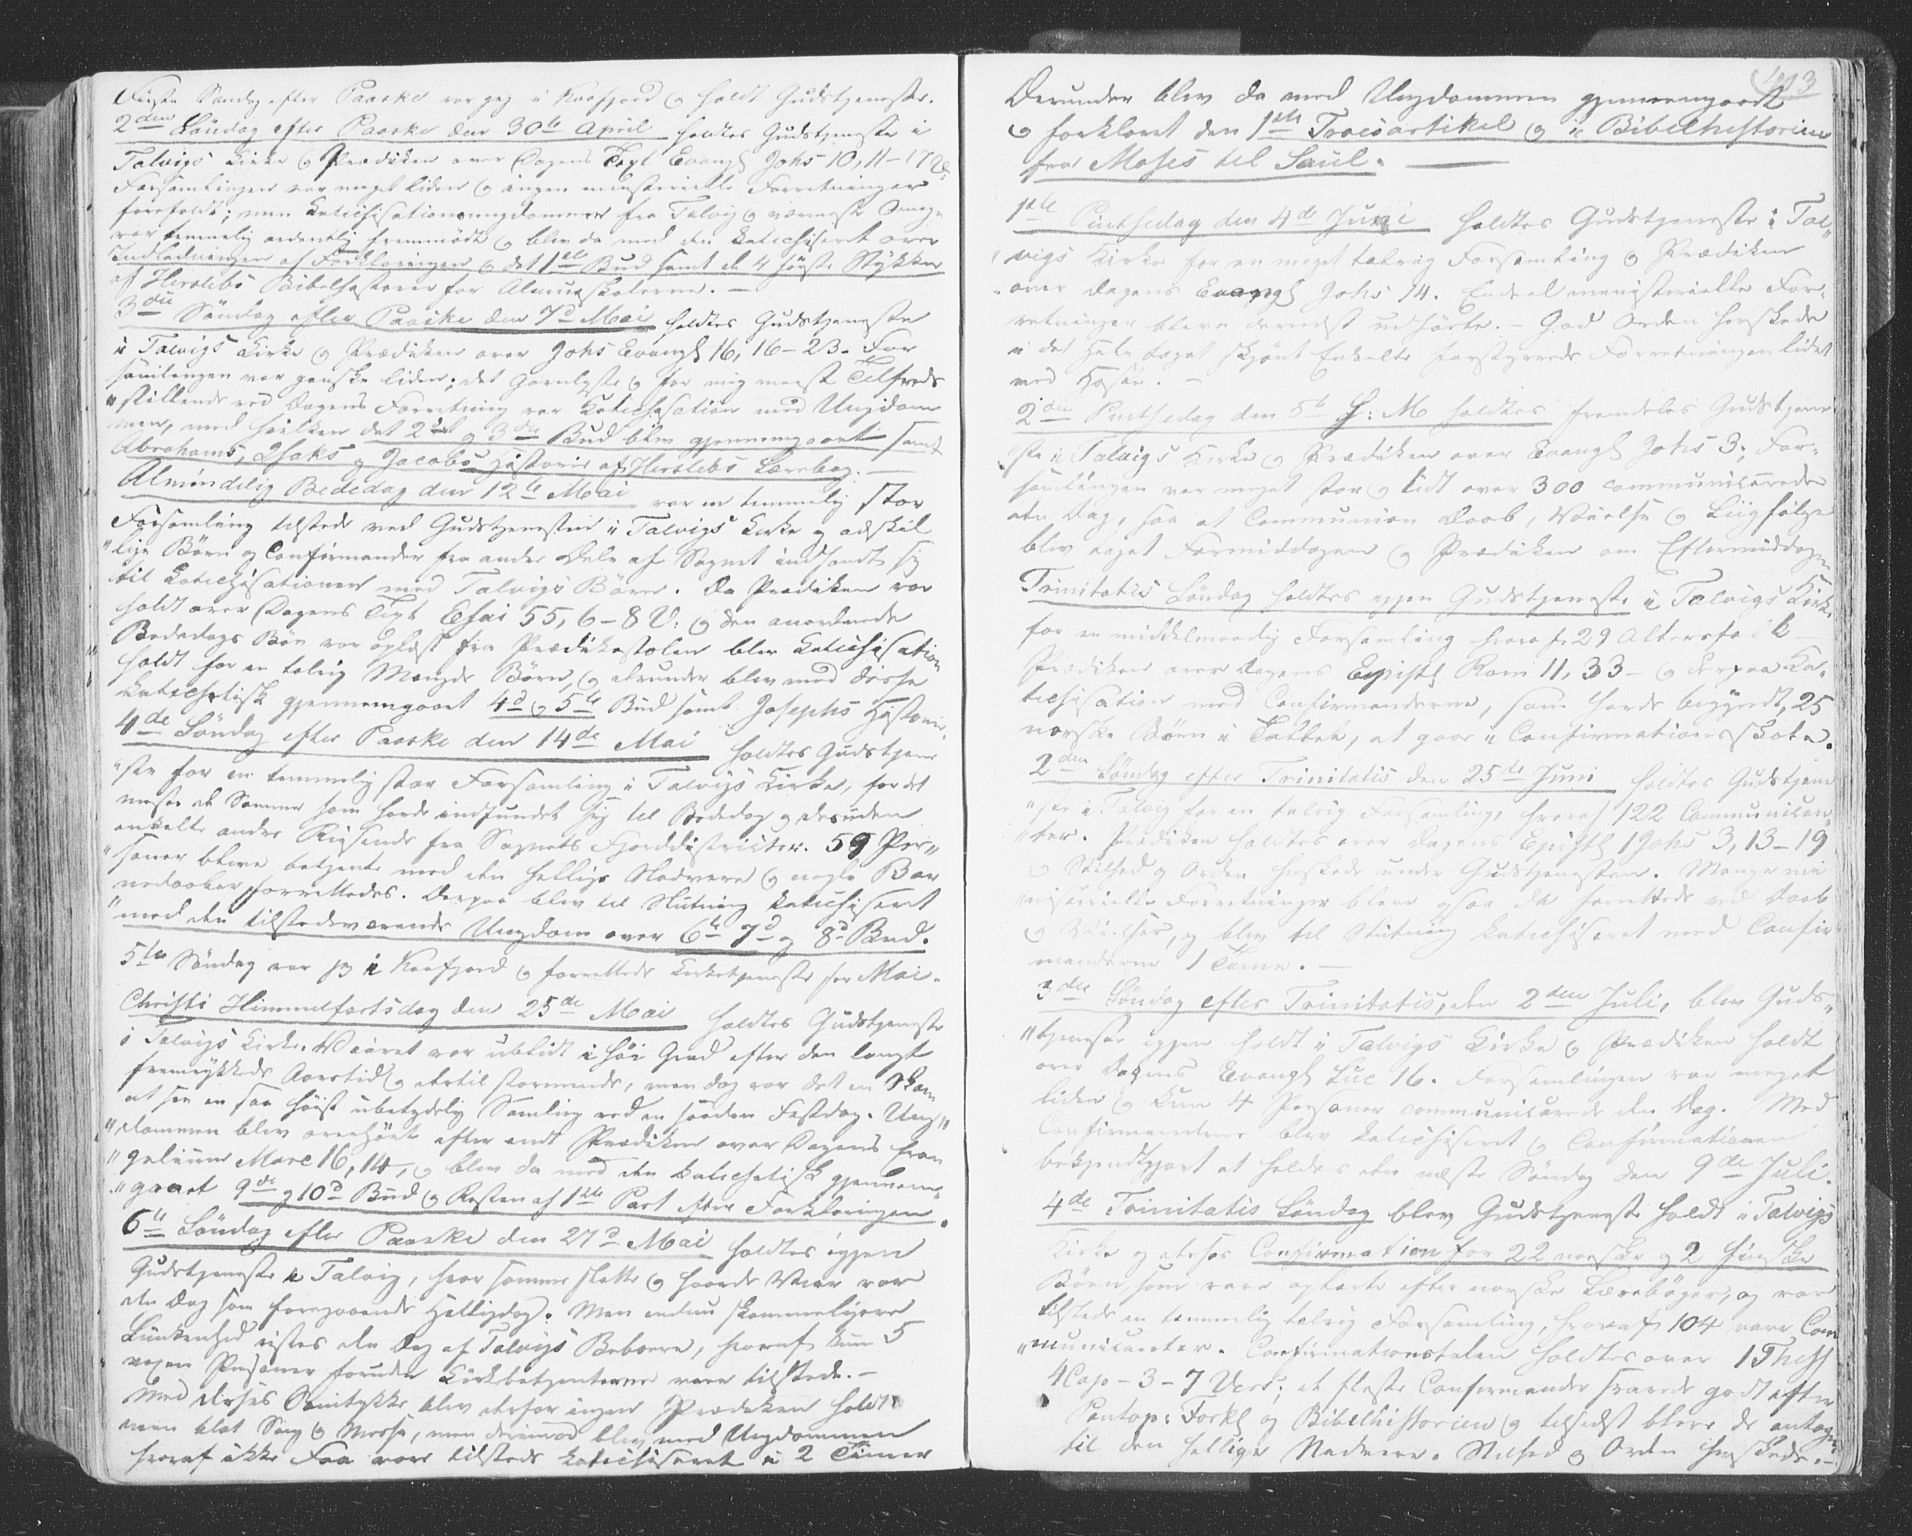 Første Søndag efter Paaske var jeg i Kaafjord og holdt Gudstjeneste.
2den Søndag efter Paaske den 30te April holdtes Gudstjeneste i
Talvigs Kirke og Prædiken over Dagens Text Evangl Johs 10, 11-17
Forsamlingen var meget liden og ingen ministerielle Forretninger
forefaldt; men Katechisationsungdommen fra Talvig og nærmeste Omegn
var temmelig ordentlig fremmødt og blev da med den katechiseret over
Indledningen af Forklaringen og det 1ste Bud samt de 4 første Stykker
af Herslebs Bibelhistorie for Almueskolerne. —
3die Søndag efter Paaske den 7d Mai holdtes Gudstjeneste
i Talvigs Kirke og Prædiken over Johs Evangl 16, 16-23. For
samlingen var ganske liden; det Gavnligste og for mig meest Tilfreds
"stillende ved Dagens Forretning var Katechisation med Ungdom
men, med hvilken det 2det og 3die Bud blev gjennemgaaet samt
Abrahams, Isaks og Jacobs Historie af Herslebs Lærebog. —
Almindelig Bededag den 12te Mai var en temmelig stor
Forsamling tilstede ved Gudstjenesten i Talvigs Kirke og adskil
"lige Børn og Confirmander fra andre Dele af Sognet indfandt sig
til Katechisationen med Talvigs Børn. Da Prædiken var
holdt over Dagens Text Esai 55, 6-8 V: og den anordnede
Bededags Bøn var oplæst fra Prædikestolen blev Katechisation
holdt for en talrig Mængde Børn, og derunder blev med disse
katechetisk gjennemgaaet 4d og 5te Bud samt Josephs Historie.
4de Søndag efter Paaske den 14de Mai holdtes Gudstjene
"ste for en temmelig stor Forsamling i Talvigs Kirke, for det
meste de Samme som havde indfundet sig til Bededag og desuden
enkelte andre Reisende fra Sognets Fjorddistricter. 59 Per"
"soner bleve betjente med den hellige Nadvere og nogle Bar
nedaaber forrettedes. Derpaa blev til Slutning katechiseret
"med den tilstedeværende Ungdom over 6te 7d og 8d Bud.
5te Søndag var jeg i Kaafjord og forrettede Kirketjeneste for Mai.
Christi Himmelfartsdag den 25de Mai holdtes Gudstjeneste
i Talvigs Kirke. Veiret var ublidt i høi Grad efter den langt
fremrykkede Aarstid og dertil stormende, men dog var det en Skam
at see en saa høist ubetydelig Samling ved en saadan Festdag. Ung"
"dommen blev overhørt efter endt Prædiken over Dagens Evan
"gelium Marc 16, 14, og blev da med den katechetisk gjennem"
"gaaet 9de og 10d Bud og Resten af 1ste Part efter Forklaringen.
6te Søndag efter Paaske den 27d Mai holdtes igjen
Gudstjeneste i Talvig, hvor samme slette og haarde Veir var
den Dag som foregaaende Helligdag. Men endnu skammeligere
Lunkenhed vistes den Dag af Talvigs Beboere, hvoraf kun 5
voxne Personer foruden Kirkebetjenterne vare tilstede. —
Med deres Samtykke blev derfor ingen Prædiken holdt
men blot Sang og Messe, men derimod blev med Ungdommen
hvoraf ikke Faa vare tilstede katechiseret i 2 Timer
493
Derunder blev da med Ungdommen gjennemgaaet
og forklaret den 1ste Troesartikel og i Bibelhistorien
fra Moses til Saul. —
1ste Pintsedag den 4d Juni holdtes Gudstjeneste i Tal"
vigs Kirke for en meget talrig Forsamling og Prædiken
over Dagens Evangl Johs 14. Endeel ministerielle For"
retninger bleve dernæst udførte. — God Orden herskede
i det Hele taget skjønt Enkelte forstyrrede Forretningen lidet
med Hosten. —
2den Pintsedag den 5te H: M holdtes fremdeles Gudstjene
ste i Talvigs Kirke og Prædiken over Evangl Johs 3; For"
samlingen var meget stor og lidt over 300 communicerede
den Dag, saa at Communion Daab, Vielse og Liigfølge
blev taget Formiddagen og Prædiken om Eftermiddagen
Trinitatis Søndag holdtes igjen Gudstjeneste i Talvigs Kirke
for en middelmaadig Forsamling hvoraf 29 Altersfolk —
Prædiken over Dagens Epistl Rom 11, 33 - og derpaa Ka"
techisation med Confirmanderne, som havde begyndt, 25
norske Børn i Tallet, at gaae i Confirmationsskole.
2den Søndag efter Trinitatis den 25de Juni holdtes Gudstjene
"ste i Talvig for en talrig Forsamling, hvoraf 122 Communican"
"ter. Prædiken holdtes over Dagens Epistl 1 Johs 3, 13-19
og Stilhed og Orden herskede under Gudstjenesten. Mange mi
"nisterielle Forretninger bleve ogsaa da forrettede ved Daab
og Vielser, og blev til Slutning katechiseret med Confir
manderne 1 Time. —
3die Søndag efter Trinitatis, den 2den Juli, blev Guds"
"tjeneste igjen holdt i Talvigs Kirke og Prædiken holdt
over Dagens Evangl Luc 16. Forsamlingen var meget
liden og kun 4 Personer communicerede den Dag. Med
Confirmanderne blev katechiseret og Confirmationen
bekjendtgjort at holdes den næste Søndag den 9de Juli.
4de Trinitatis Søndag blev Gudstjeneste holdt i Talvigs
Kirke og derhos Confirmation for 22 norske og 2 finske
Børn som vare oplærte efter norske Lærebøger, og var
tilstede en temmelig talrig Forsamling, hvoraf 104 vare Com
"municanter. Confirmationstalen holdtes over 1 Thess
4 Cap - 3 - 7 Vers; de fleste Confirmander svarede godt efter
Pontop: Forkl og Bibelhistorien og tilsidst bleve de antagne
til den hellige Nadvere. Stilhed og Orden herskede. —